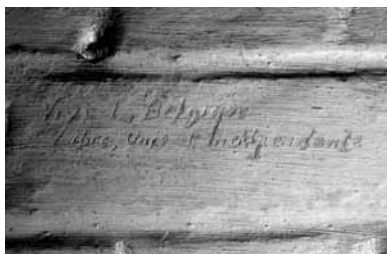 Vive la Belgique
Libre, Unie et Indépendante